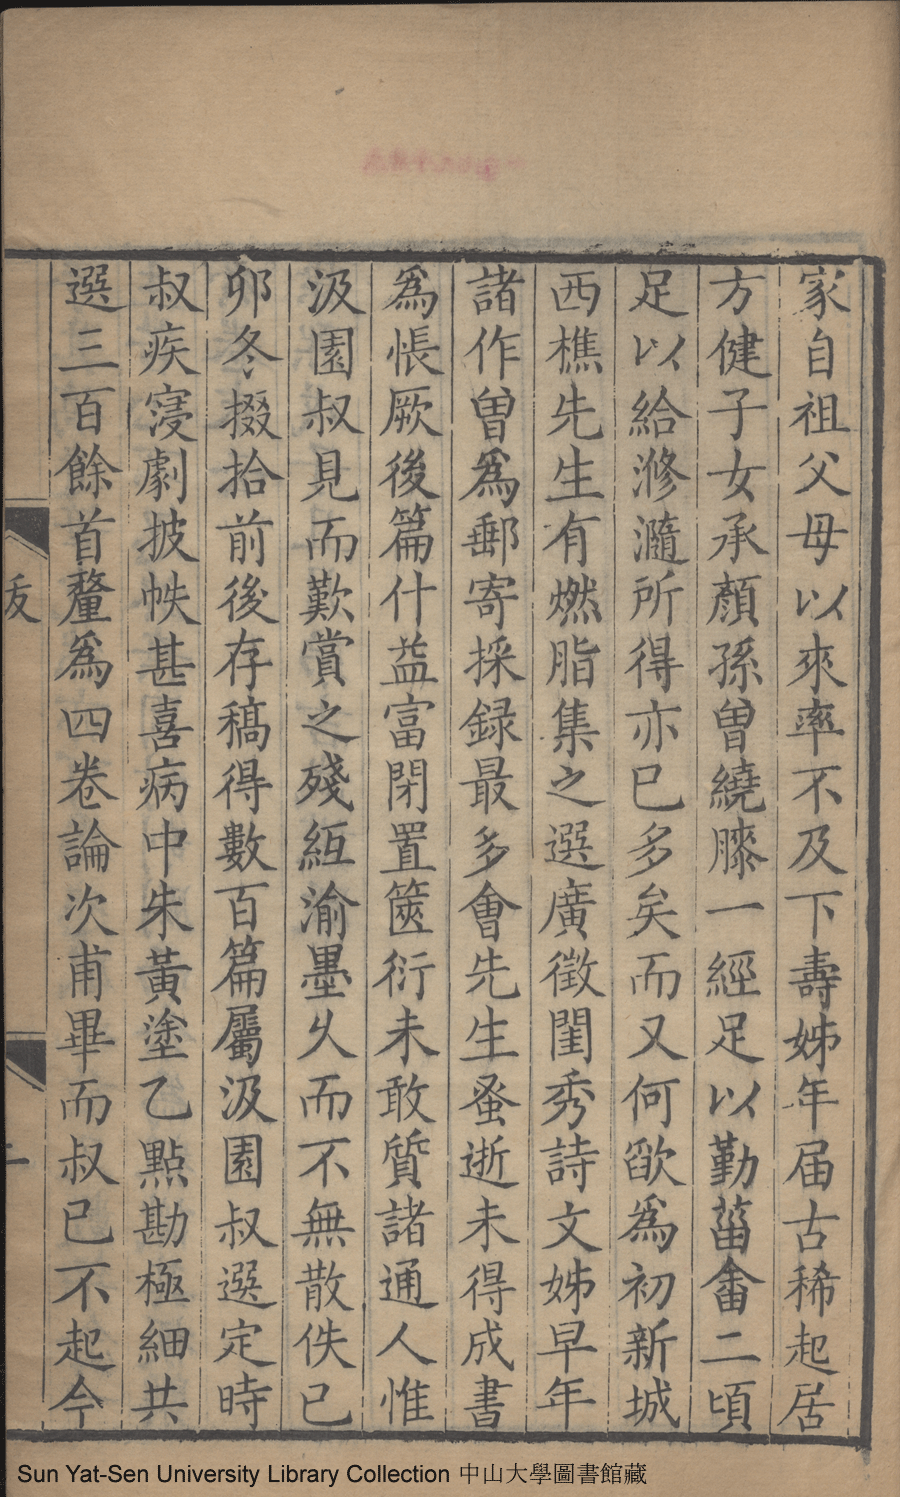 家自祖父母以來率不及下壽姊年届古稀起居
方健子女承顏孫曾繞膝一經足以勤菑畬二頃
足以給滫瀡所得亦已多矣而又何欿爲初新城
西樵先生有燃脂集之選廣徵閨秀詩文姊早年
諸作曾爲郵寄採録最多會先生蚤逝未得成書
爲悵厥後篇什益富閉置篋衍未敢質諸通人惟
汲園叔見而歎賞之殘𥿄渝墨乆而不無散佚已
卯冬掇拾前後存稿得數百篇屬汲園叔選定時
叔疾寖劇披帙甚喜病中朱黃塗乙點勘極細共
選三百餘首釐爲四卷論次甫畢而叔已不起今
Sun Yat-Sen University Library Collection 中山大學圖書館藏